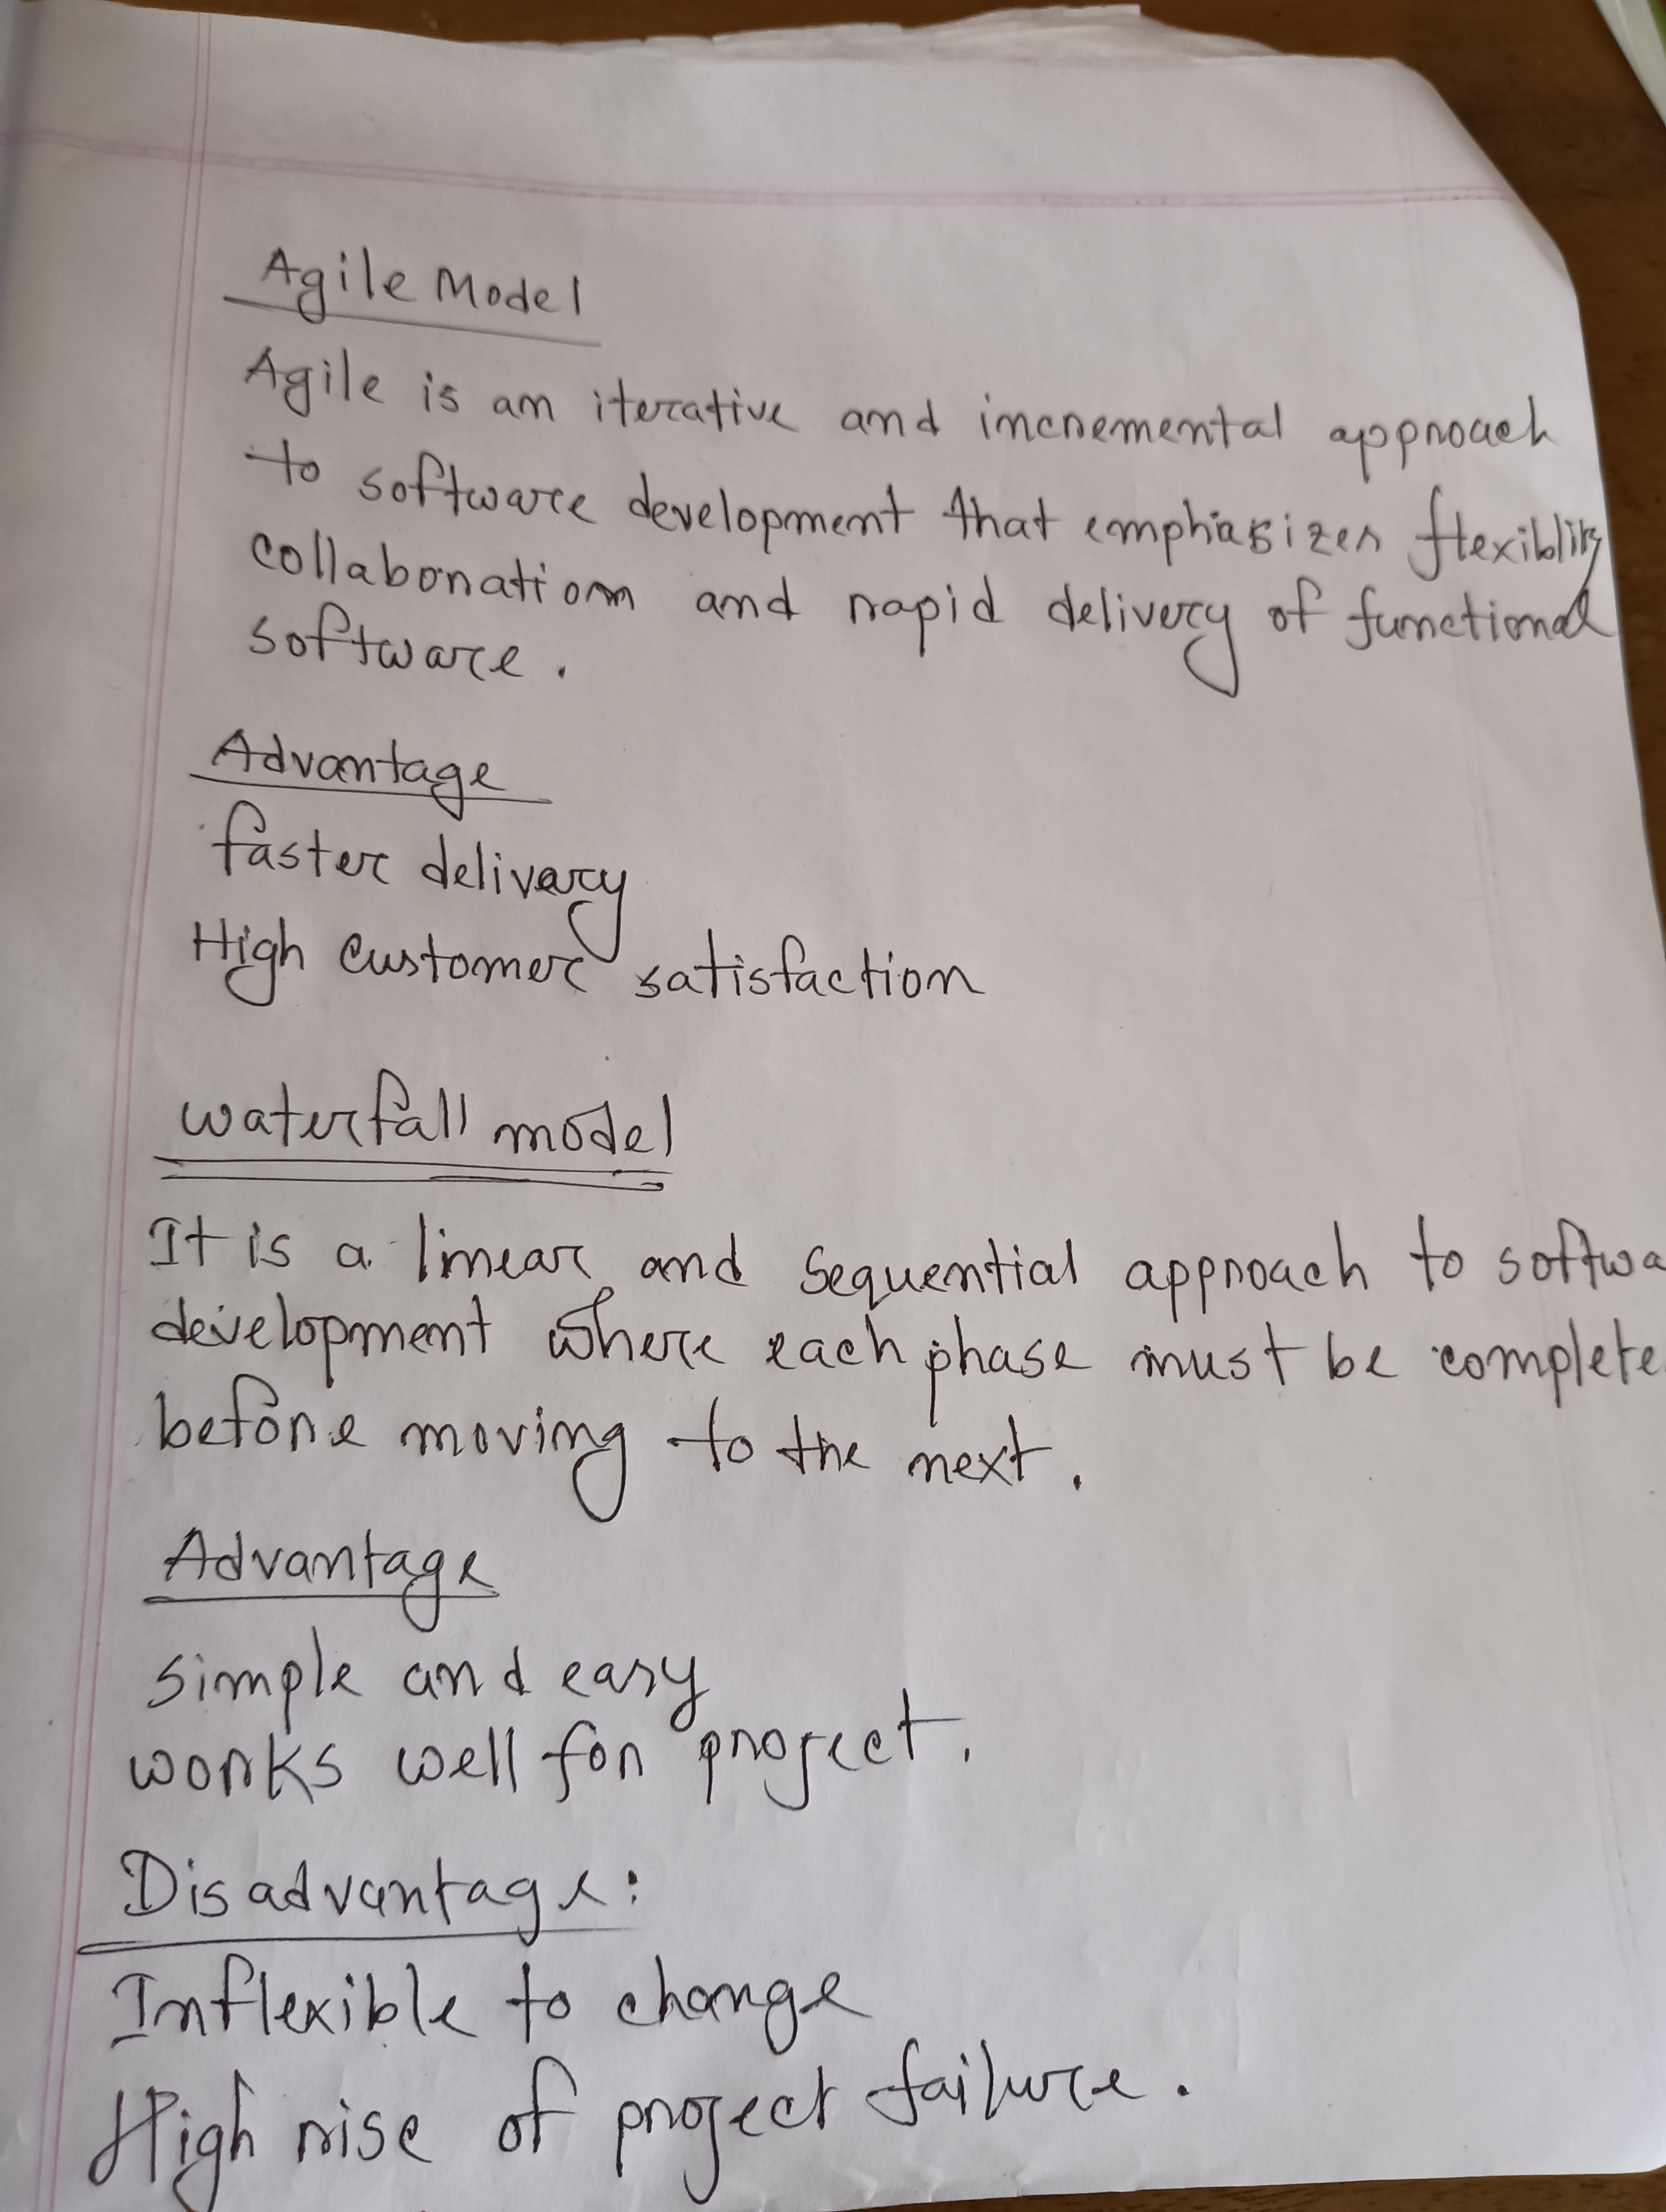 Agile Model
Agile is an iterative and incremental approach
to software development that emphasizes flexiblity
collaboration and rapid delivery of functional
software.
Advantage
faster delivery
High customer satisfaction
waterfall model
It is a linear and sequential approach to softwa
development where each phase must be complete
before moving to the next.
Advantage
simple and easy
works well for project.
Disadvantage:
Inflexible to change
High rise of project failure.